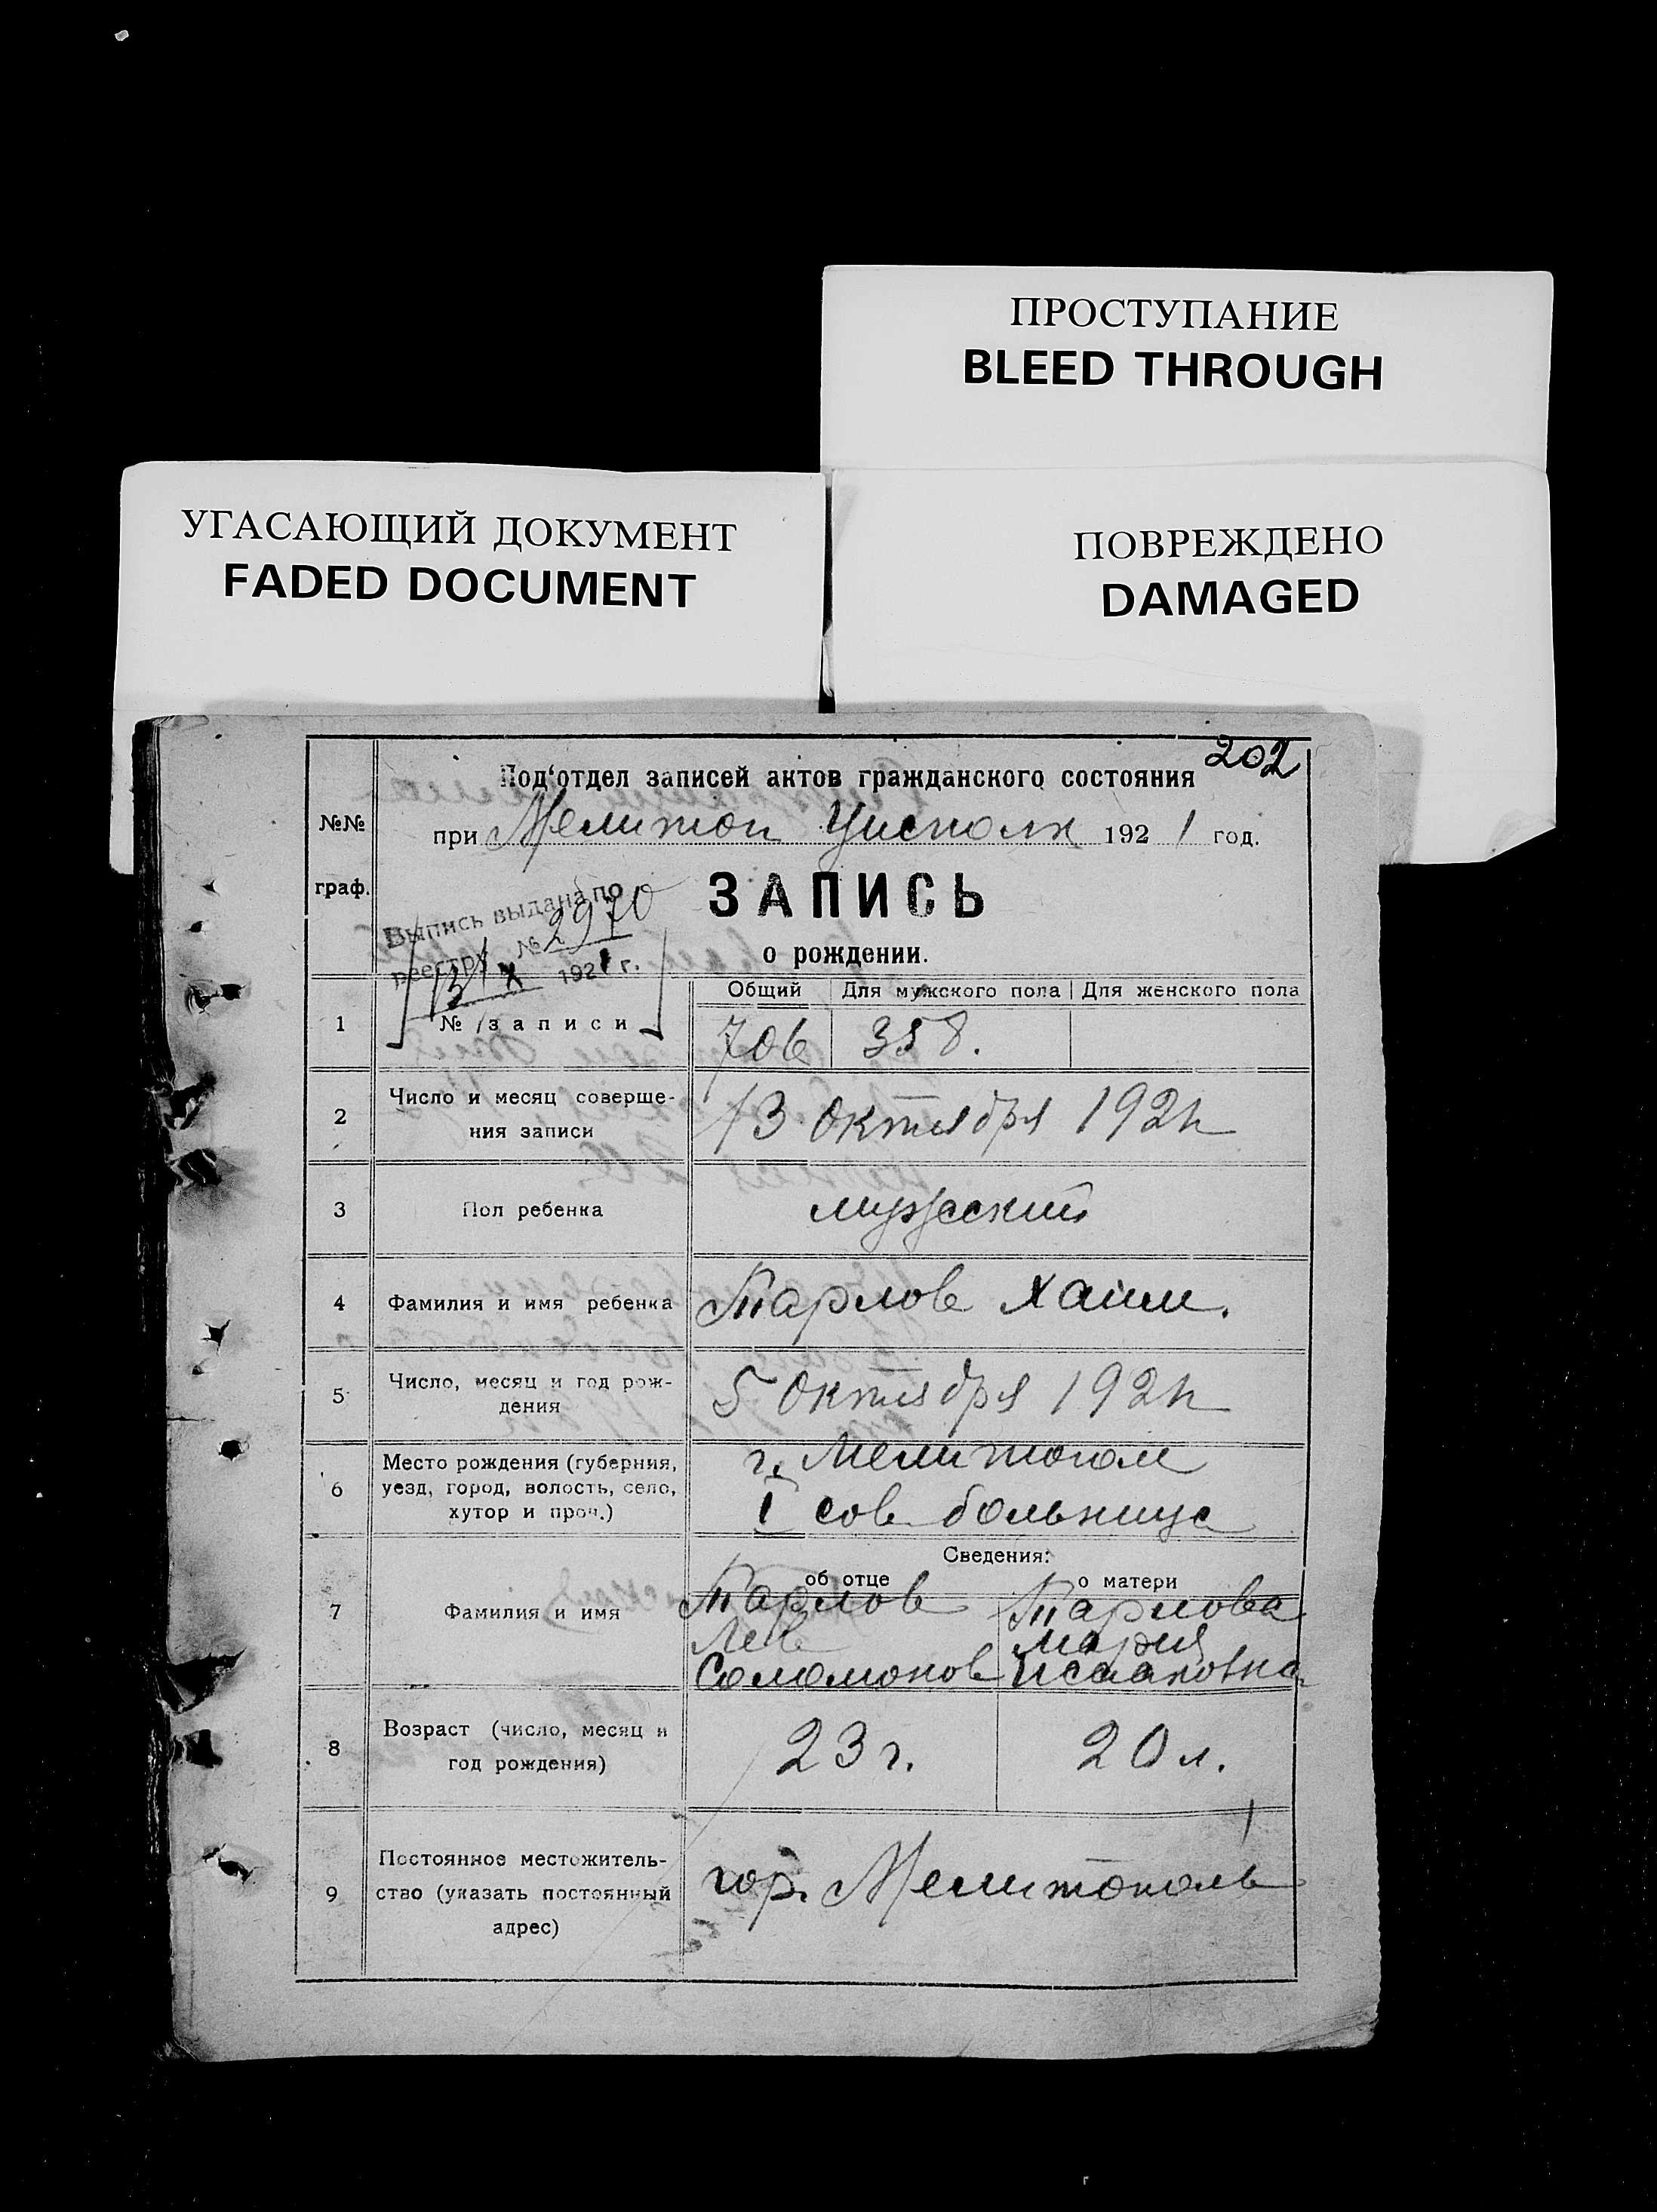 ПРОСТУПАНИЕ
BLEED THROUGH
УГАСАЮЩИЙ ДОКУМЕНТ
FADED DOCUMENT
ПОВРЕЖДЕНО
DAMAGED
202
Под‘отдел записей актов гражданского состояния
при Мелитоп Уисполк 1921 год.
№№
граф.
ЗАПИСЬ
о рождении.
Выпись выдана по
реестру № 2970
13 X 1921 г.
Общий Для мужского пола Для женского пола
1 № записи 706 358.
2 Число и месяц соверше-
ния записи 13 Октября 1921
3 Пол ребенка мужский
4 Фамилия и имя ребенка Тарлов Хаим.
5 Число, месяц и год рож-
дения 5 Октября 1921
6 Место рождения (губерния,
уезд, город, волость, село,
хутор и проч.)
г. Мелитополь
I сов больница
Сведения:
об отце о матери
7 Фамилия и имя
Тарлов Тарлова
Лев Мария
Соломонов Исааковна
8 Возраст (число, месяц и
год рождения)
23 г. 20 л.
9 Постоянное местожитель-
ство (указать постоянный
адрес)
гор. Мелитополь